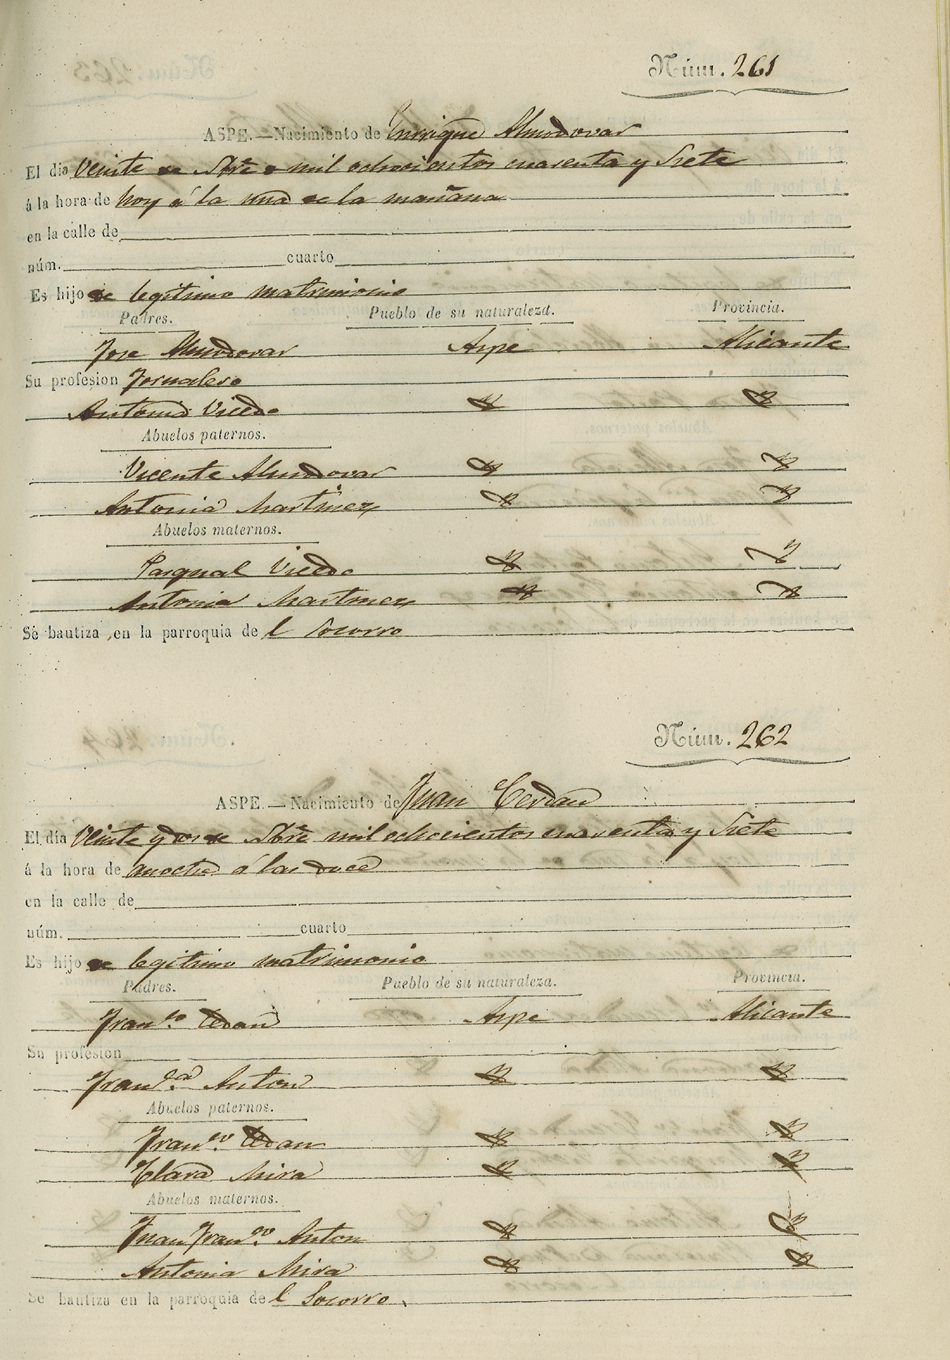 Núm. 261
ASPE.—Nacimiento de Enrique Almodovar
El dia Veinte de Sbre mil ochocientos cuarenta y Siete
á la hora de hoy á la una de la mañana
en la calle de
núm. cuarto
Es hijo de legitimo matrimonio
Padres. Pueblo de su naturaleza. Provincia.
Jose Almodovar Aspe Alicante
Su profesion Jornalero
Antonia Vicedo
Abuelos paternos.
Vicente Almodovar
Antonia Martinez
Abuelos maternos.
Pasqual Vicedo
Antonia Martinez
Se bautiza en la parroquia de l Socorro
Núm. 262
ASPE.—Nacimiento de Juan Cerdan
El dia Veinte y dos de mil ochocientos cuarenta y Siete
á la hora de anoche á las doce
en la calle de
núm. cuarto
Es hijo de legitimo matrimonio
Padres. Pueblo de su naturaleza. Provincia.
Fran.co Cedan Aspe Alicante
Su profesion
Fran.ca Anton
Abuelos paternos.
Fran.co Cedan
Clara Mira
Abuelos maternos.
Juan Fran.co Anton
Antonia Mira
Se bautiza en la parroquia de l Socorro.